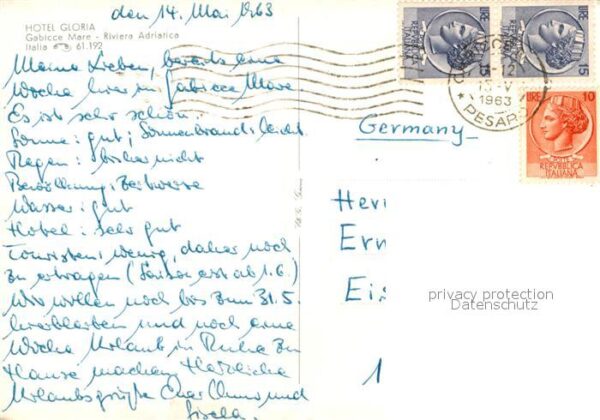 den 14. Mai 1963
HOTEL GLORIA
Gabicce Mare - Riviera Adriatica
Italia 61.192
Meine Lieben, bereits eine
Woche hier in Gabicce Mare
Es ist sehr schön.
Sonne: gut; Sonnenbrand: leicht
Regen: bisher nicht
Bewölkung: Zeitweise
Wasser: gut
Hotel: sehr gut
Touristen: wenig, daher noch
zu ertragen (Saison erst ab 1.6.)
Wir wollen noch bis zum 31.5.
hierbleiben und noch eine
Woche Urlaub in Ruhe zu
Hause machen. Herzliche
Urlaubsgrüße und
Gisela.
LIRE 15
LIRE 15
REPUBBLICA
1963
PESARO
LIRE 10
POSTE
REPVBBLICA
ITALIANA
Germany
Herr
Ern
Ei
1
privacy protection
Datenschutz